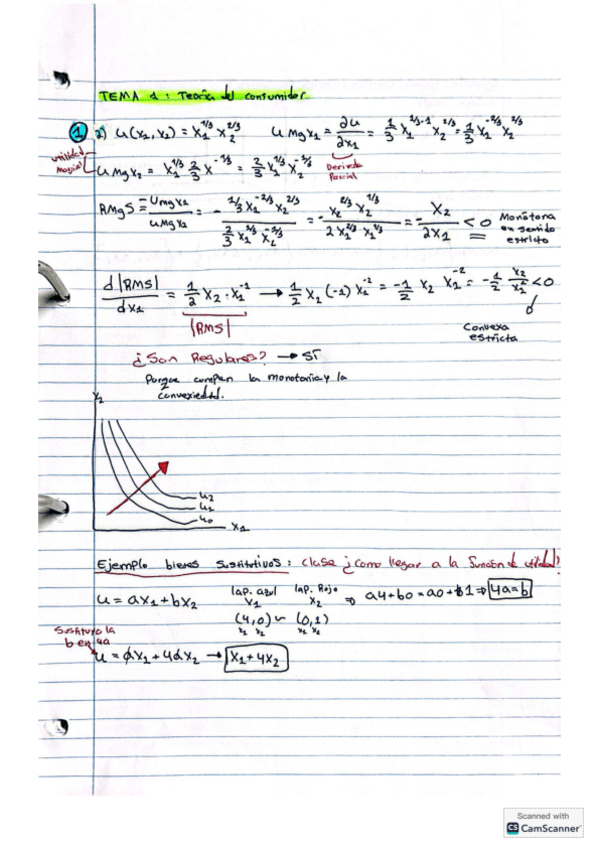 TEMA 1: Teoría del consumidor
1 2) u(x₁,x₂) = x₁^1/3 x₂^2/3 UMgx₁ = ∂u/∂x₁ = 1/3 x₁^1/3-1 x₂^2/3 = 1/3 x₁^-2/3 x₂^2/3
utilidad Marginal
Derivada Parcial
UMgx₂ = x₁^1/3 2/3 x^-1/3 = 2/3 x₁^1/3 x₂^-1/3
RMgS = -UMgx₁/UMgx₂ = - 1/3 x₁^-2/3 x₂^2/3 / 2/3 x₁^1/3 x₂^-1/3 = - x₂^2/3 x₂^1/3 / 2 x₁^2/3 · x₁^1/3 = - x₂/2x₁ < 0 Monótona en sentido estricto
d|RMS|/dx₁ = 1/2 x₂ · x₁^-1 → 1/2 x₂ (-1) x₁^-2 = -1/2 x₂ x₁^-2 = -1/2 x₂/x₁² < 0
|RMS|
Convexa estricta
¿Son Regulares? → SÍ
Porque cumplen la monotonía y la
convexidad.
x₂
u₂
u₁
u₀
x₁
Ejemplo bienes sustitutivos: clase ¿como llegar a la función de utilidad?
u = ax₁ + bx₂ lap. azul x₁ lap. Rojo x₂ ⇒ a4 + b0 = a0 + b1 ⇒ 4a = b
(4,0) ~ (0,1)
x₁ x₂ x₁ x₂
Sustituyo la
b en 4a
u = ax₁ + 4ax₂ → x₁ + 4x₂
Scanned with
CS CamScanner